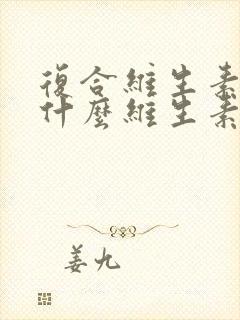 復合維生素
什麼維生素
姜九